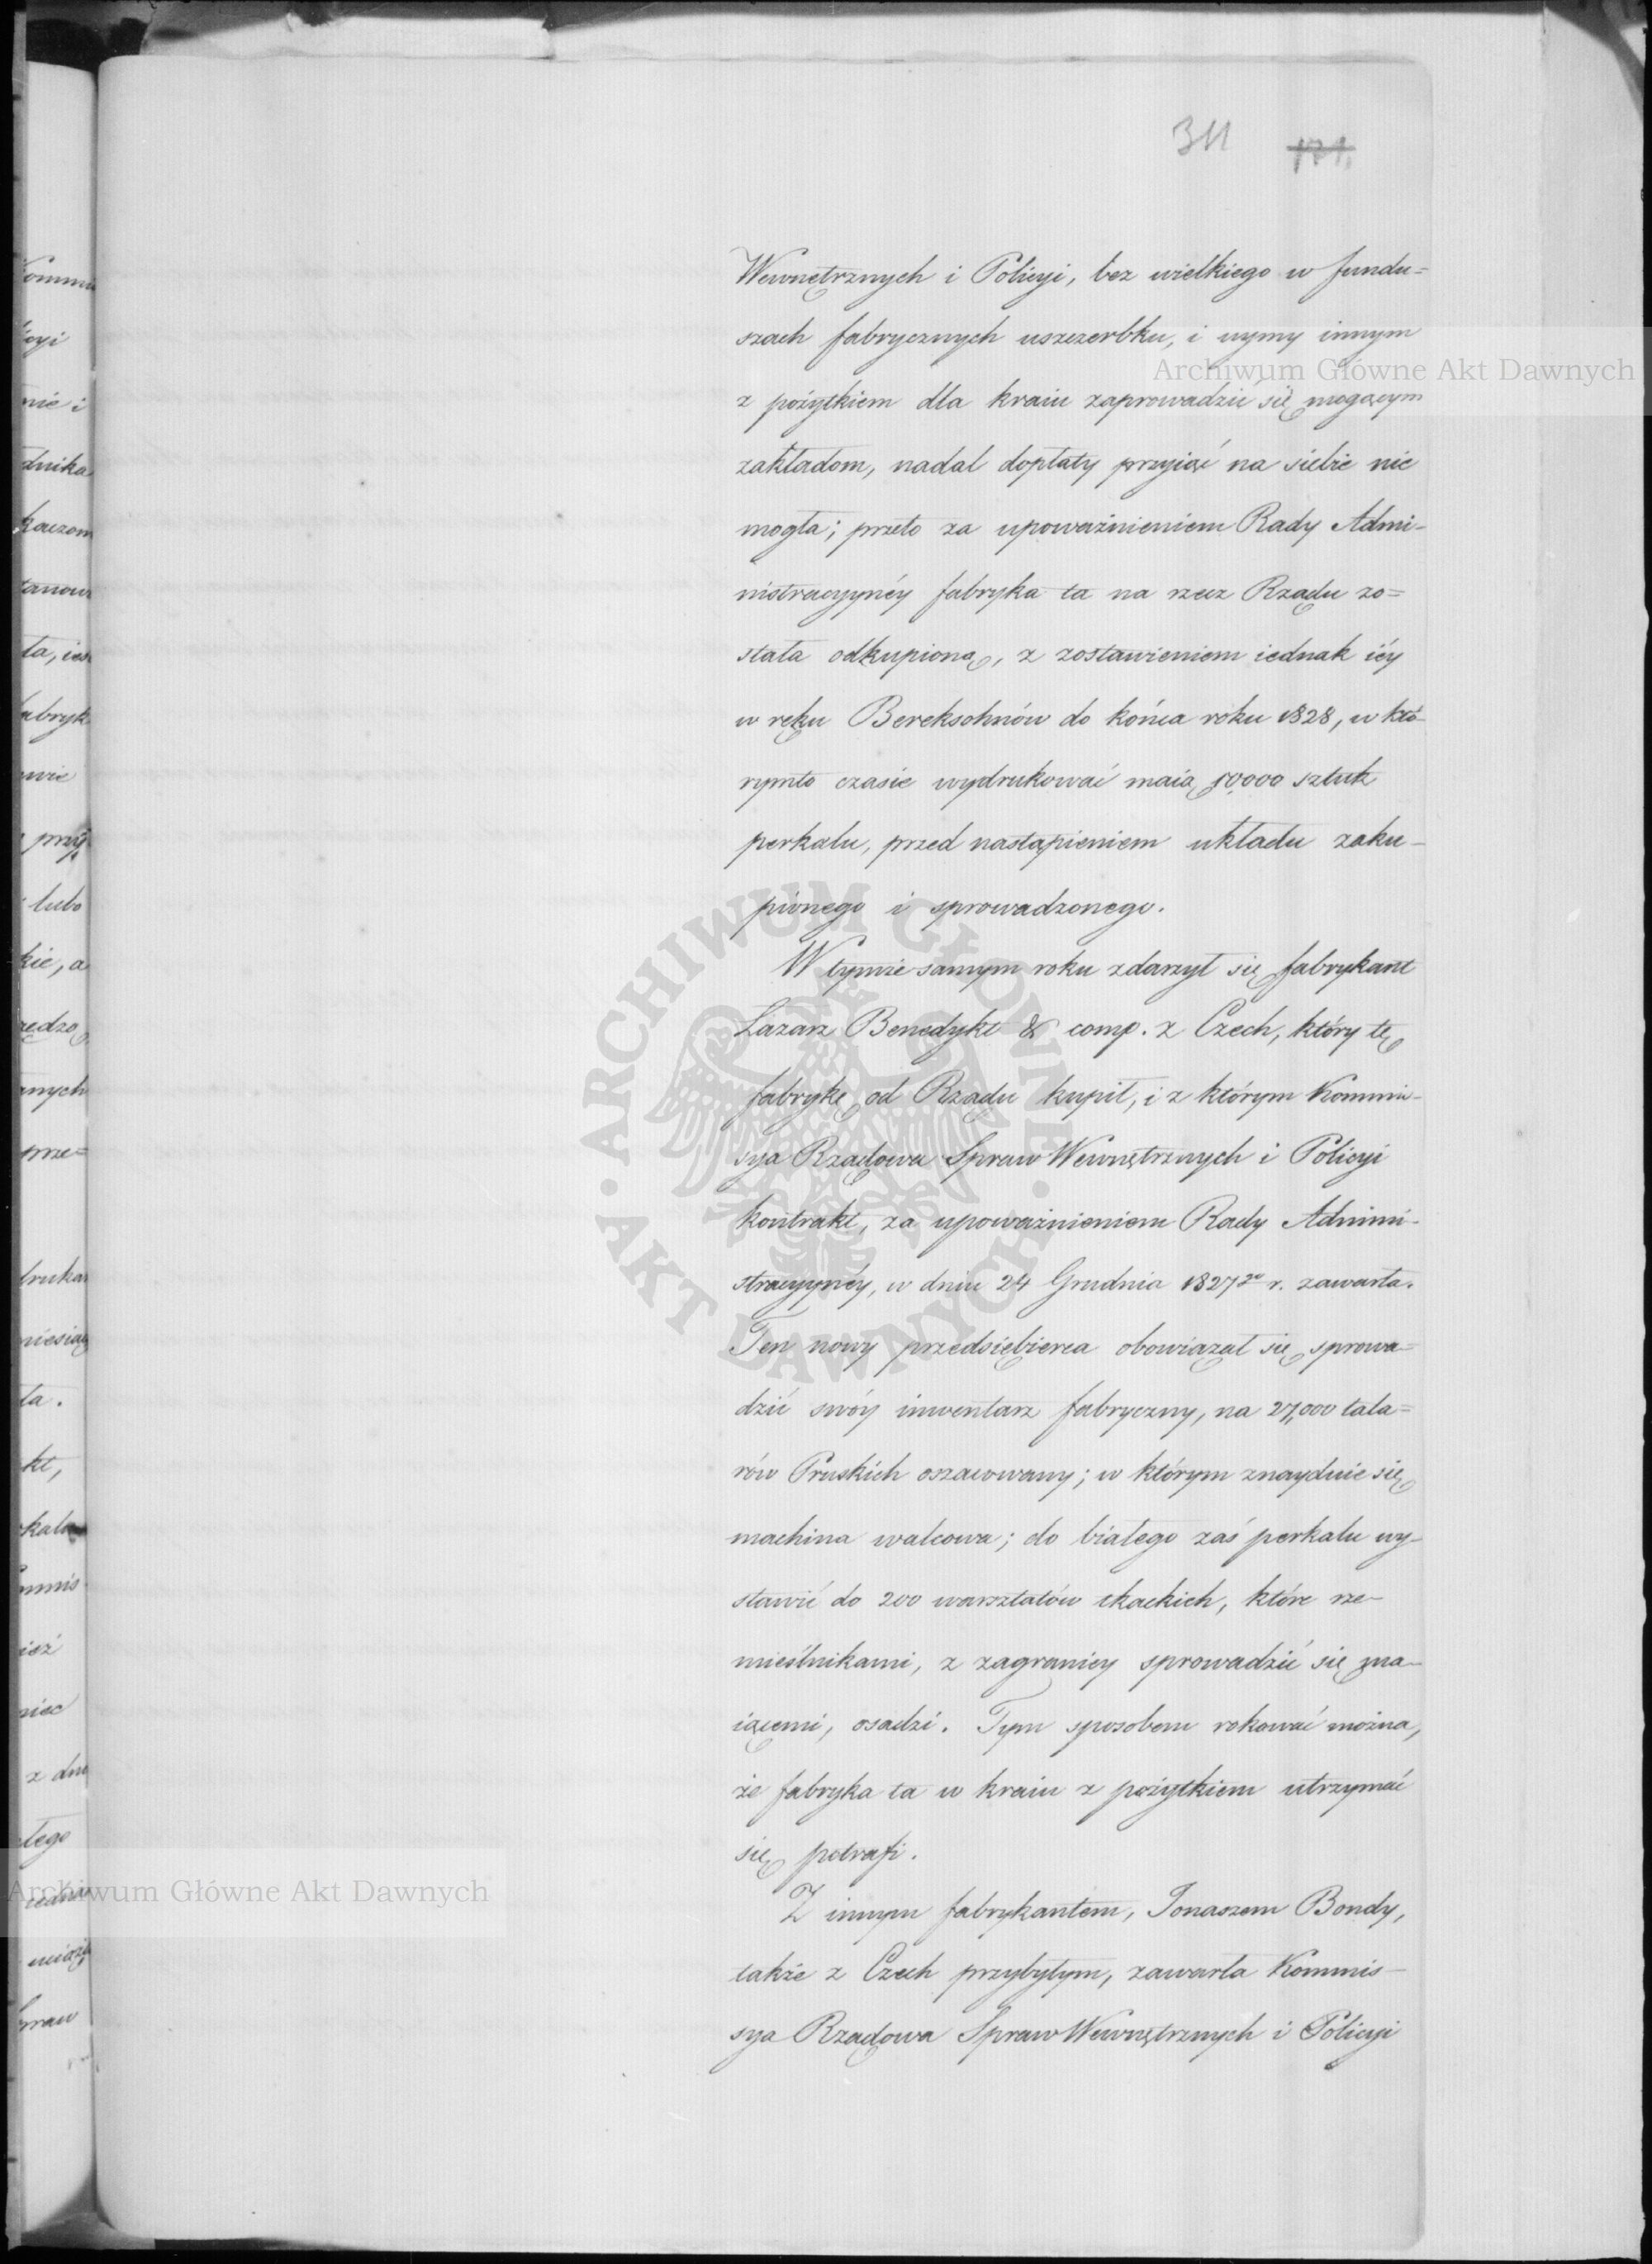 311 171.
Wewnętrznych i Policyi, bez wielkiego w fundu=
szach fabrycznych uszczerbku, i uymy innym
Archiwum Główne Akt Dawnych
z pożytkiem dla kraiu zaprowadzić się mogącym
zakładom, nadal dopłaty przyiąć na siebie nie
mogła; przeto za upoważnieniem Rady Admi-
nistracyynéy fabryka ta na rzecz Rządu zo=
stała odkupioną, z zostawieniem iednak iéy
w ręku Bereksohnów do końca roku 1828, w któ-
rymto czasie wydrukować maią 10,000 sztuk
perkalu, przed nastąpieniem układu zaku-
pionego i sprowadzonego.
W tymże samym roku zdarzył się fabrykant
Lazarz Benedykt & comp. z Czech, który tę
fabrykę od Rządu kupił, i z którym Kommis-
sya Rządowa Spraw Wewnętrznych i Policyi
kontrakt, za upoważnieniem Rady Admini-
stracyynéy, w dniu 24 Grudnia 1827go r. zawarła.
Ten nowy przedsiębierca obowiązał się sprowa=
dzić swóy inwentarz fabryczny, na 27,000 tala=
rów Pruskich oszacowany; w którym znayduie się
machina walcowa; do białego zaś perkalu wy-
stawić do 200 warsztatów tkackich, które rze-
mieślnikami, z zagranicy sprowadzić się ma-
iącemi, osadzi. Tym sposobem rokować można,
że fabryka ta w kraiu z pożytkiem utrzymać
się potrafi.
Archiwum Główne Akt Dawnych
Z innym fabrykantem, Jonaszem Bondy,
także z Czech przybyłym, zawarła Kommis-
sya Rządowa Spraw Wewnętrznych i Policyi
ARCHIWUM GŁÓWNE AKT DAWNYCH